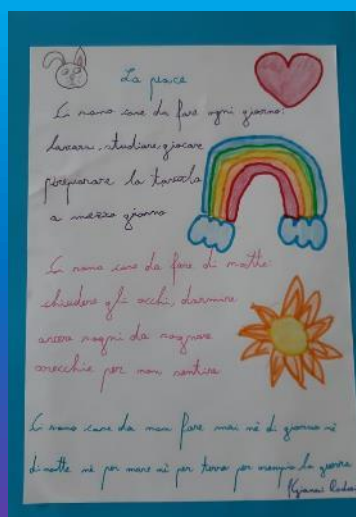 La peace
Ci sono cose da fare ogni giorno:
lavarsi, studiare, giocare
preparare la tavola
a mezzo giorno
Ci sono cose da fare di notte:
chiudere gli occhi, dormire
avere sogni da sognare
orecchie per non sentire
Ci sono cose da non fare mai nè di giorno nè
di notte nè per mare nè per terra per esempio la guerra
(Gianni Rodari